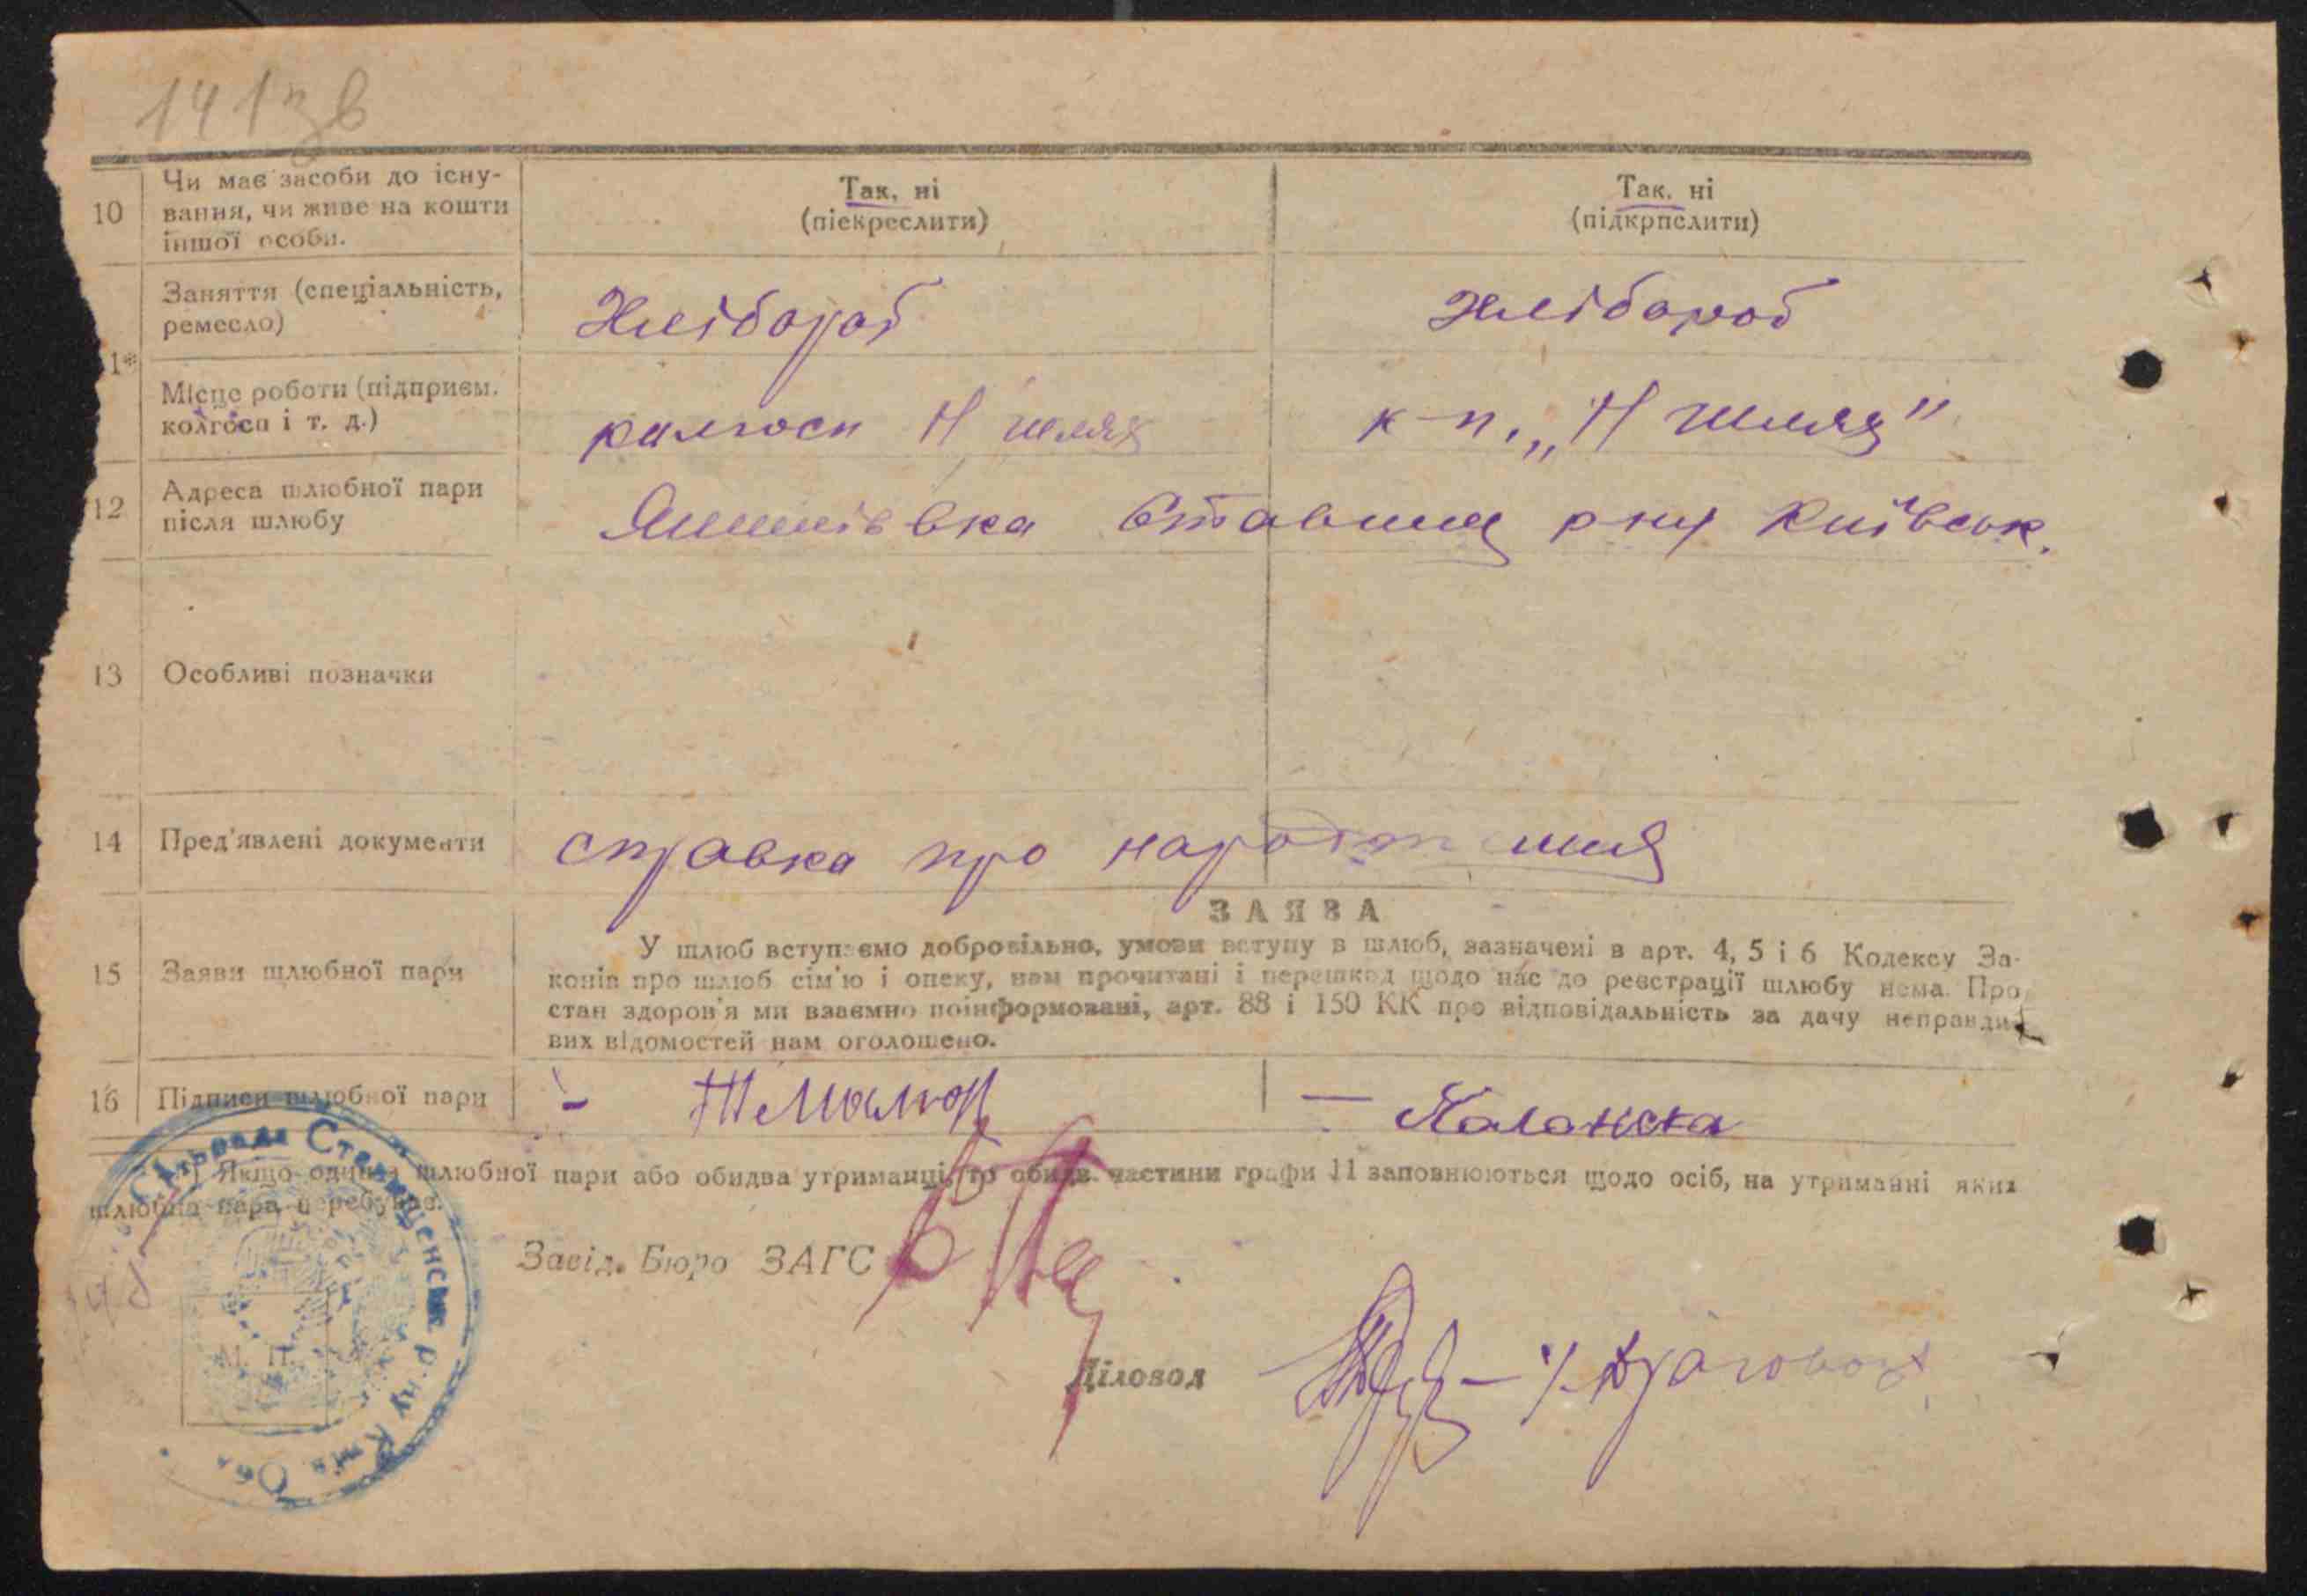 141 зв
10 Чи має засоби до існу-
вання, чи живе на кошти
іншої особи.
Так, ні
(піекреслити)
Так, ні
(підкрпслити)
Заняття (спеціальність,
ремесло)
Хлібороб
Хлібороб
1*
Місце роботи (підприєм.
колгосп і т. д.)
колгосп Н шлях
к-п. „Н шлях"
12 Адреса шлюбної пари
після шлюбу
Ставищ р ну Київськ.
13 Особливі позначки
14 Пред'явлені документи
справка про
ЗАЯВА
15 Заяви шлюбної пари
У шлюб вступаємо добровільно, умови вступу в шлюб, зазначені в арт. 4, 5 і 6 Кодексу За-
конів про шлюб сім'ю і опеку, нам прочитані і перешкод щодо нас до реєстрації шлюбу нема. Про
стан здоров'я ми взаємно поінформовані, арт. 88 і 150 КК про відповідальність за дачу неправди-
вих відомостей нам оголошено.
16 Підписи шлюбної пари
*) Якщо один з шлюбної пари або обидва утриманці, то обидв. частини графи 11 заповнюються щодо осіб, на утриманні яких
шлюбна пара перебуває.
Завід. Бюро ЗАГС
М. П.
Діловод
Сільрада Ставищенськ. р-ну Київ. Обл.